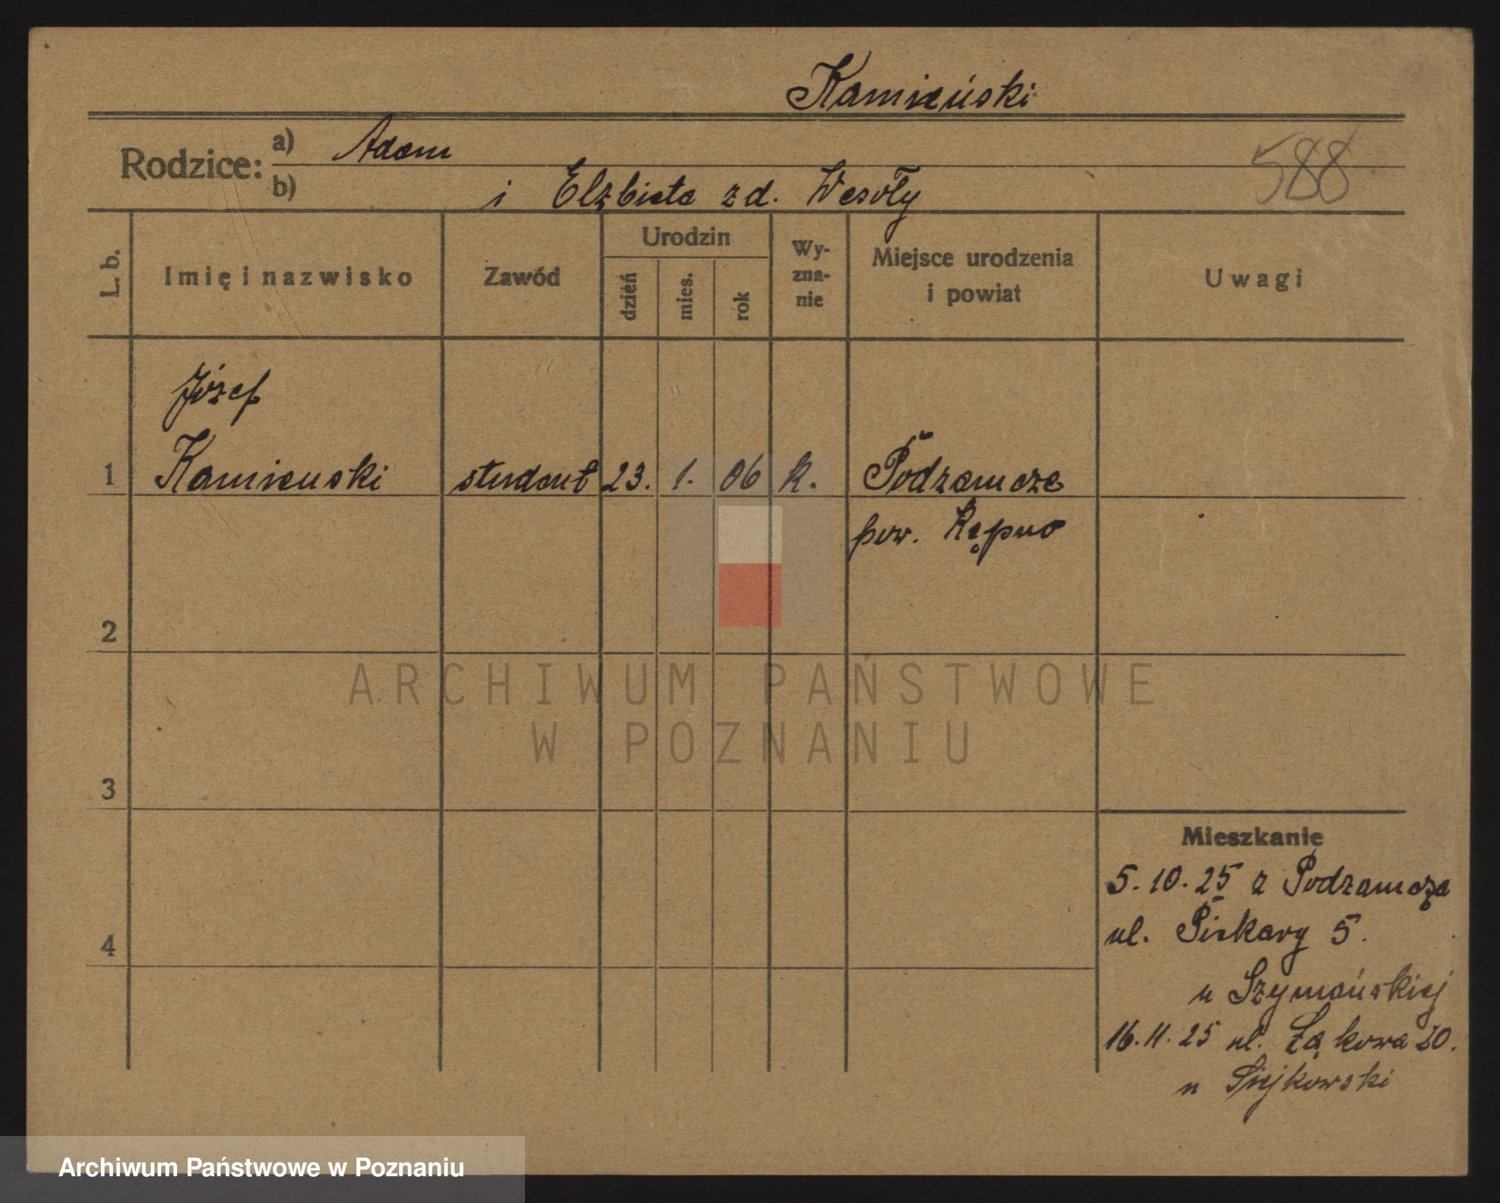 Kamieński
Rodzice: a) Adam
588
b) i Elżbieta z d. Wesoły
L. b.
Imię i nazwisko
Zawód
Urodzin
dzień
mies.
rok
Wy-
zna-
nie
Miejsce urodzenia
i powiat
Uwagi
Józef
1 Kamieński student 23. 1. 06 k. Podzamcze
pow. Kępno
2
ARCHIWUM PAŃSTWOWE
W POZNANIU
3
Mieszkanie
5.10.25 z Podzamcza
ul. Piekary 5.
4
u Szymańskiej
16.11.25 ul. Łąkowa 20.
u
Archiwum Państwowe w Poznaniu